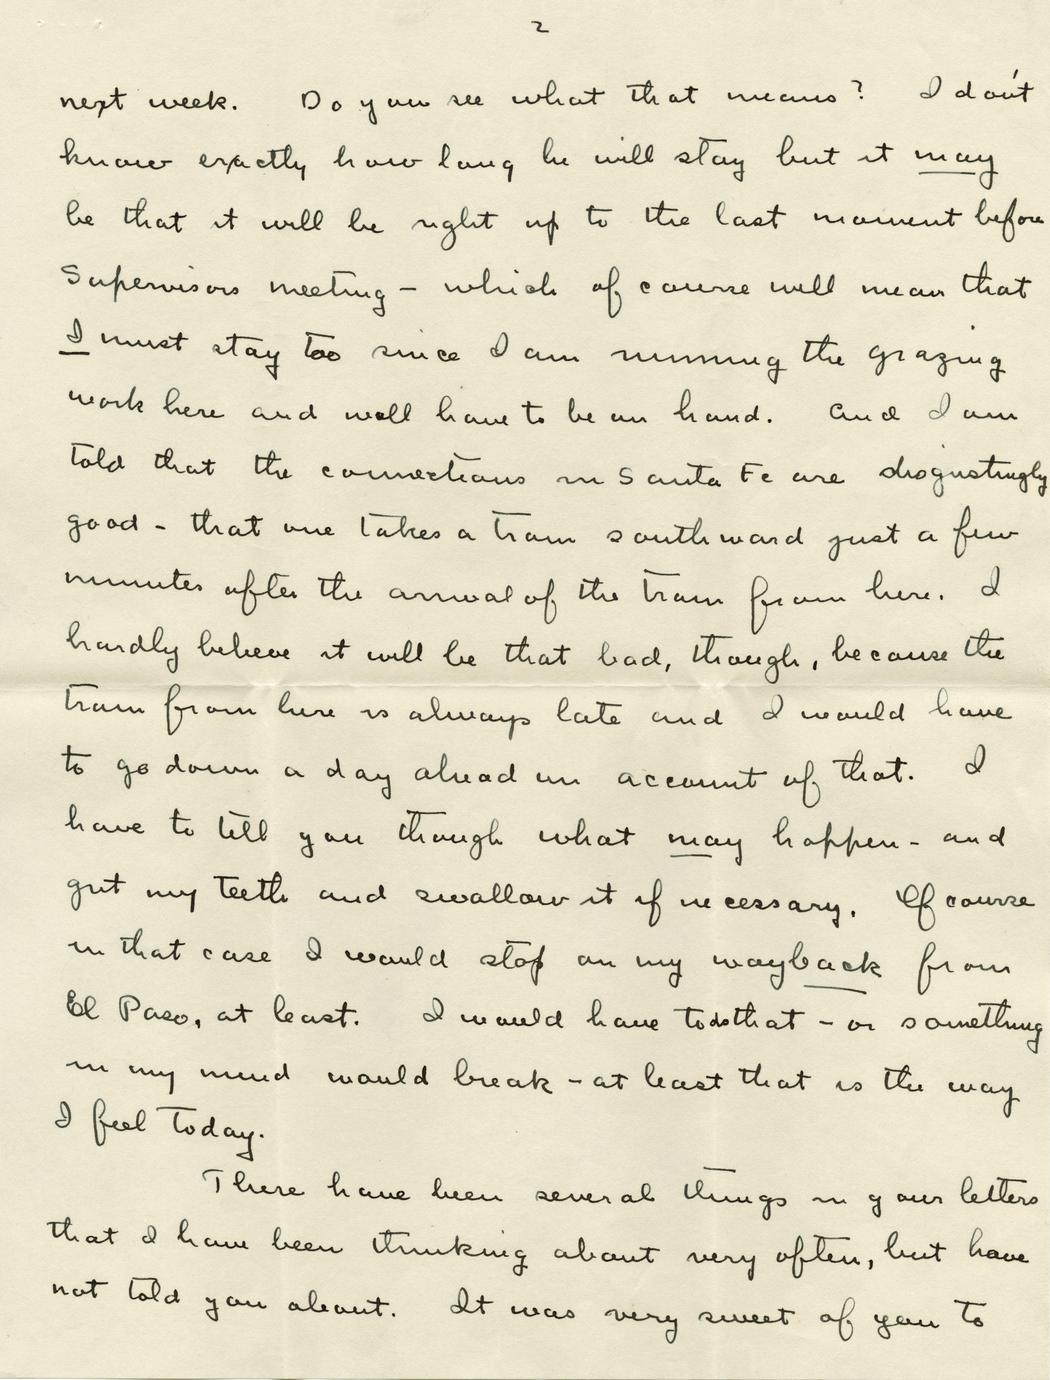 2
next week. Do you see what that means? I don't
know exactly how long he will stay but it may
be that it will be right up to the last moment before
Supervisors meeting - which of course will mean that
I must stay too since I am running the grazing
work here and will have to be on hand. And I am
told that the connections in Santa Fe are disgustingly
good - that one takes a train southward just a few
minutes after the arrival of the train from here. I
hardly believe it will be that bad, though, because the
train from here is always late and I would have
to go down a day ahead on account of that. I
have to tell you though what may happen - and
grit my teeth and swallow it if necessary. Of course
in that case I would stop on my way back from
El Paso, at least. I would have to do that - or something
in my mind would break - at least that is the way
I feel today.
There have been several things in your letters
that I have been thinking about very often, but have
not told you about. It was very sweet of you to